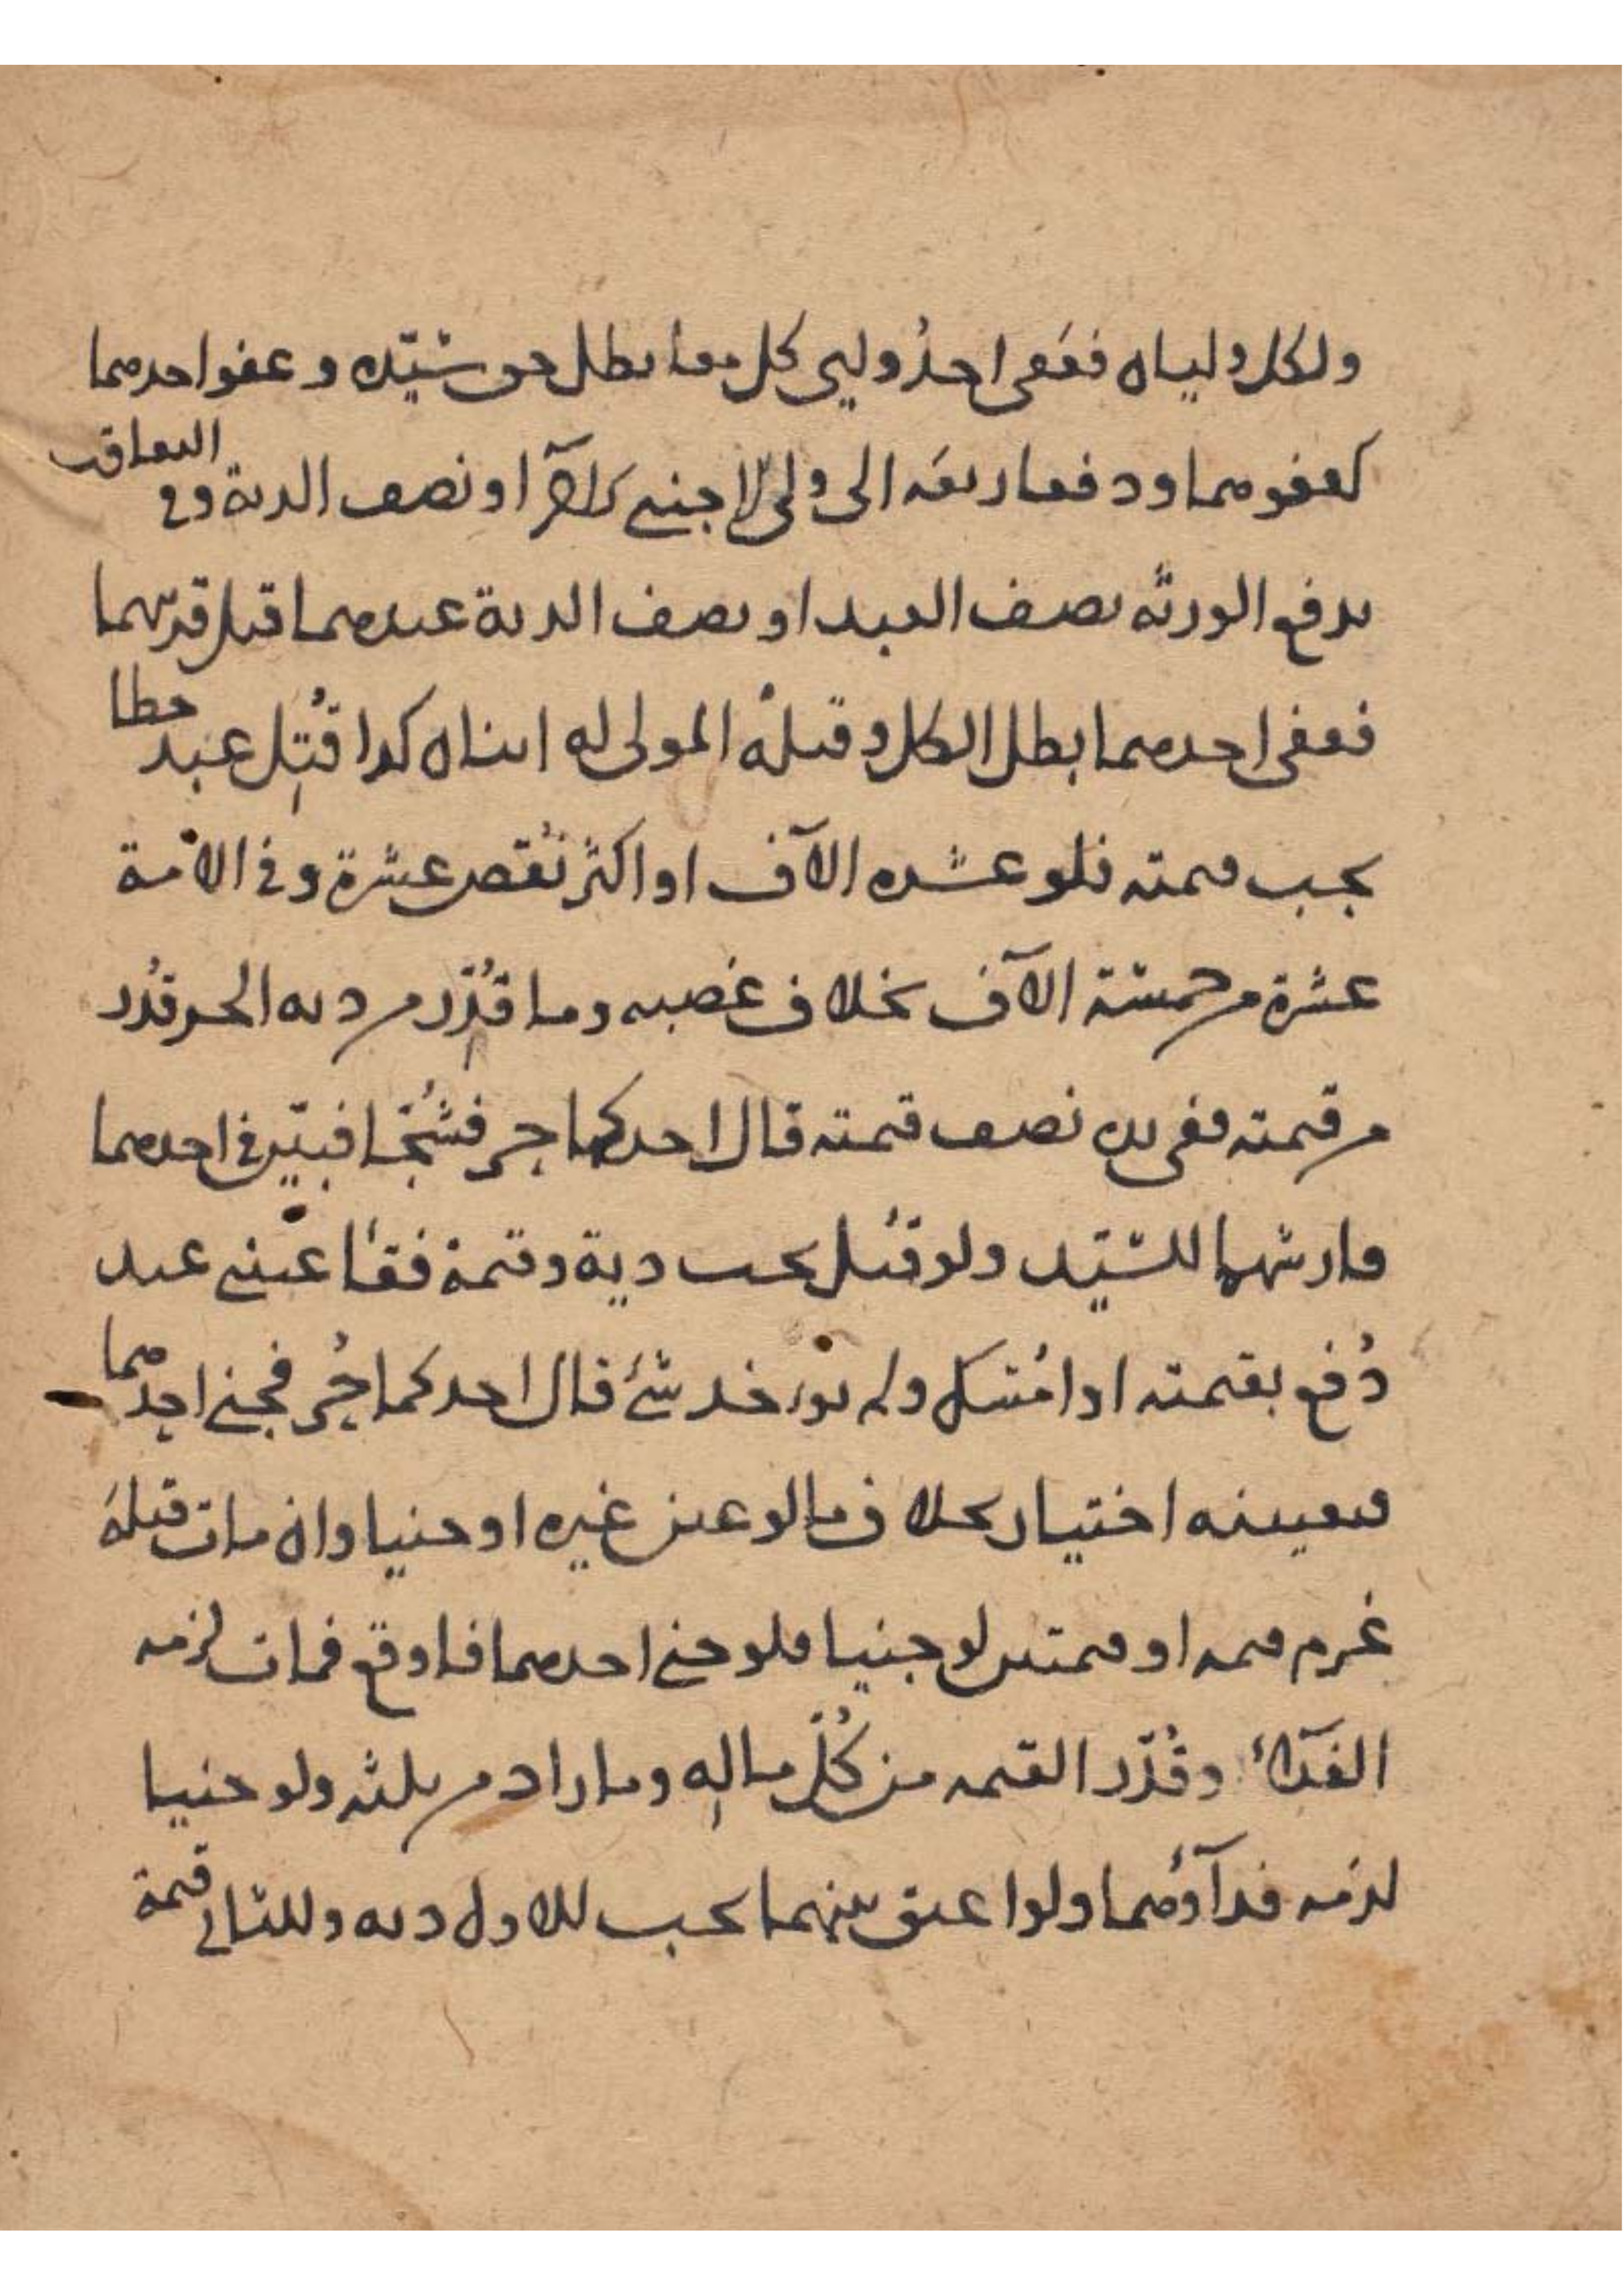 ولكل وليان فعفى احدُ وليي كل معا بطل حق سيّده وعفو احدهما
كعفوهما ودفعا ربعه الى ولي الاجنبي او نصف الدية وفي التعاقب
يدفع الورثة نصف العبد او نصف الدية عبدهما قتل قريبهما
فعفى احدهما بطل الكل وقتلهُ المولى له ابنان كذا قُتِل عبد خطا
يجب قيمته فلو عشرة الآف او اكثر نُقص عشرة وفي الامة
عشرة من خمسة الآف بخلاف غصبه وما قُدّر من دية الحر قدّر
من قيمته ففي يده نصف قيمته قال احدكما حر فشُجّا فبيّن في احدهما
فارشهما للسيّد ولو قتل يجب دية وقيمة فقأ عيني عبد
دُفع بقيمته او امُسك ولم يؤخذ شئ قال احدكما حُر فجنى احدهما
فتعيينه اختيار بخلاف ما لو عين غيره او جنيا وان مات قبله
غرم قيمة او قيمتين لو جنيا فلو جنى احدهما فاوقع فمات لزمه
الفدآء وقُدّر القيمة من كُلّ ماله وما زاد من ثلثه ولو جنيا
لزمه فدآؤهما ولو اعتق بينهما يجب للاول دية وللثاني قيمة